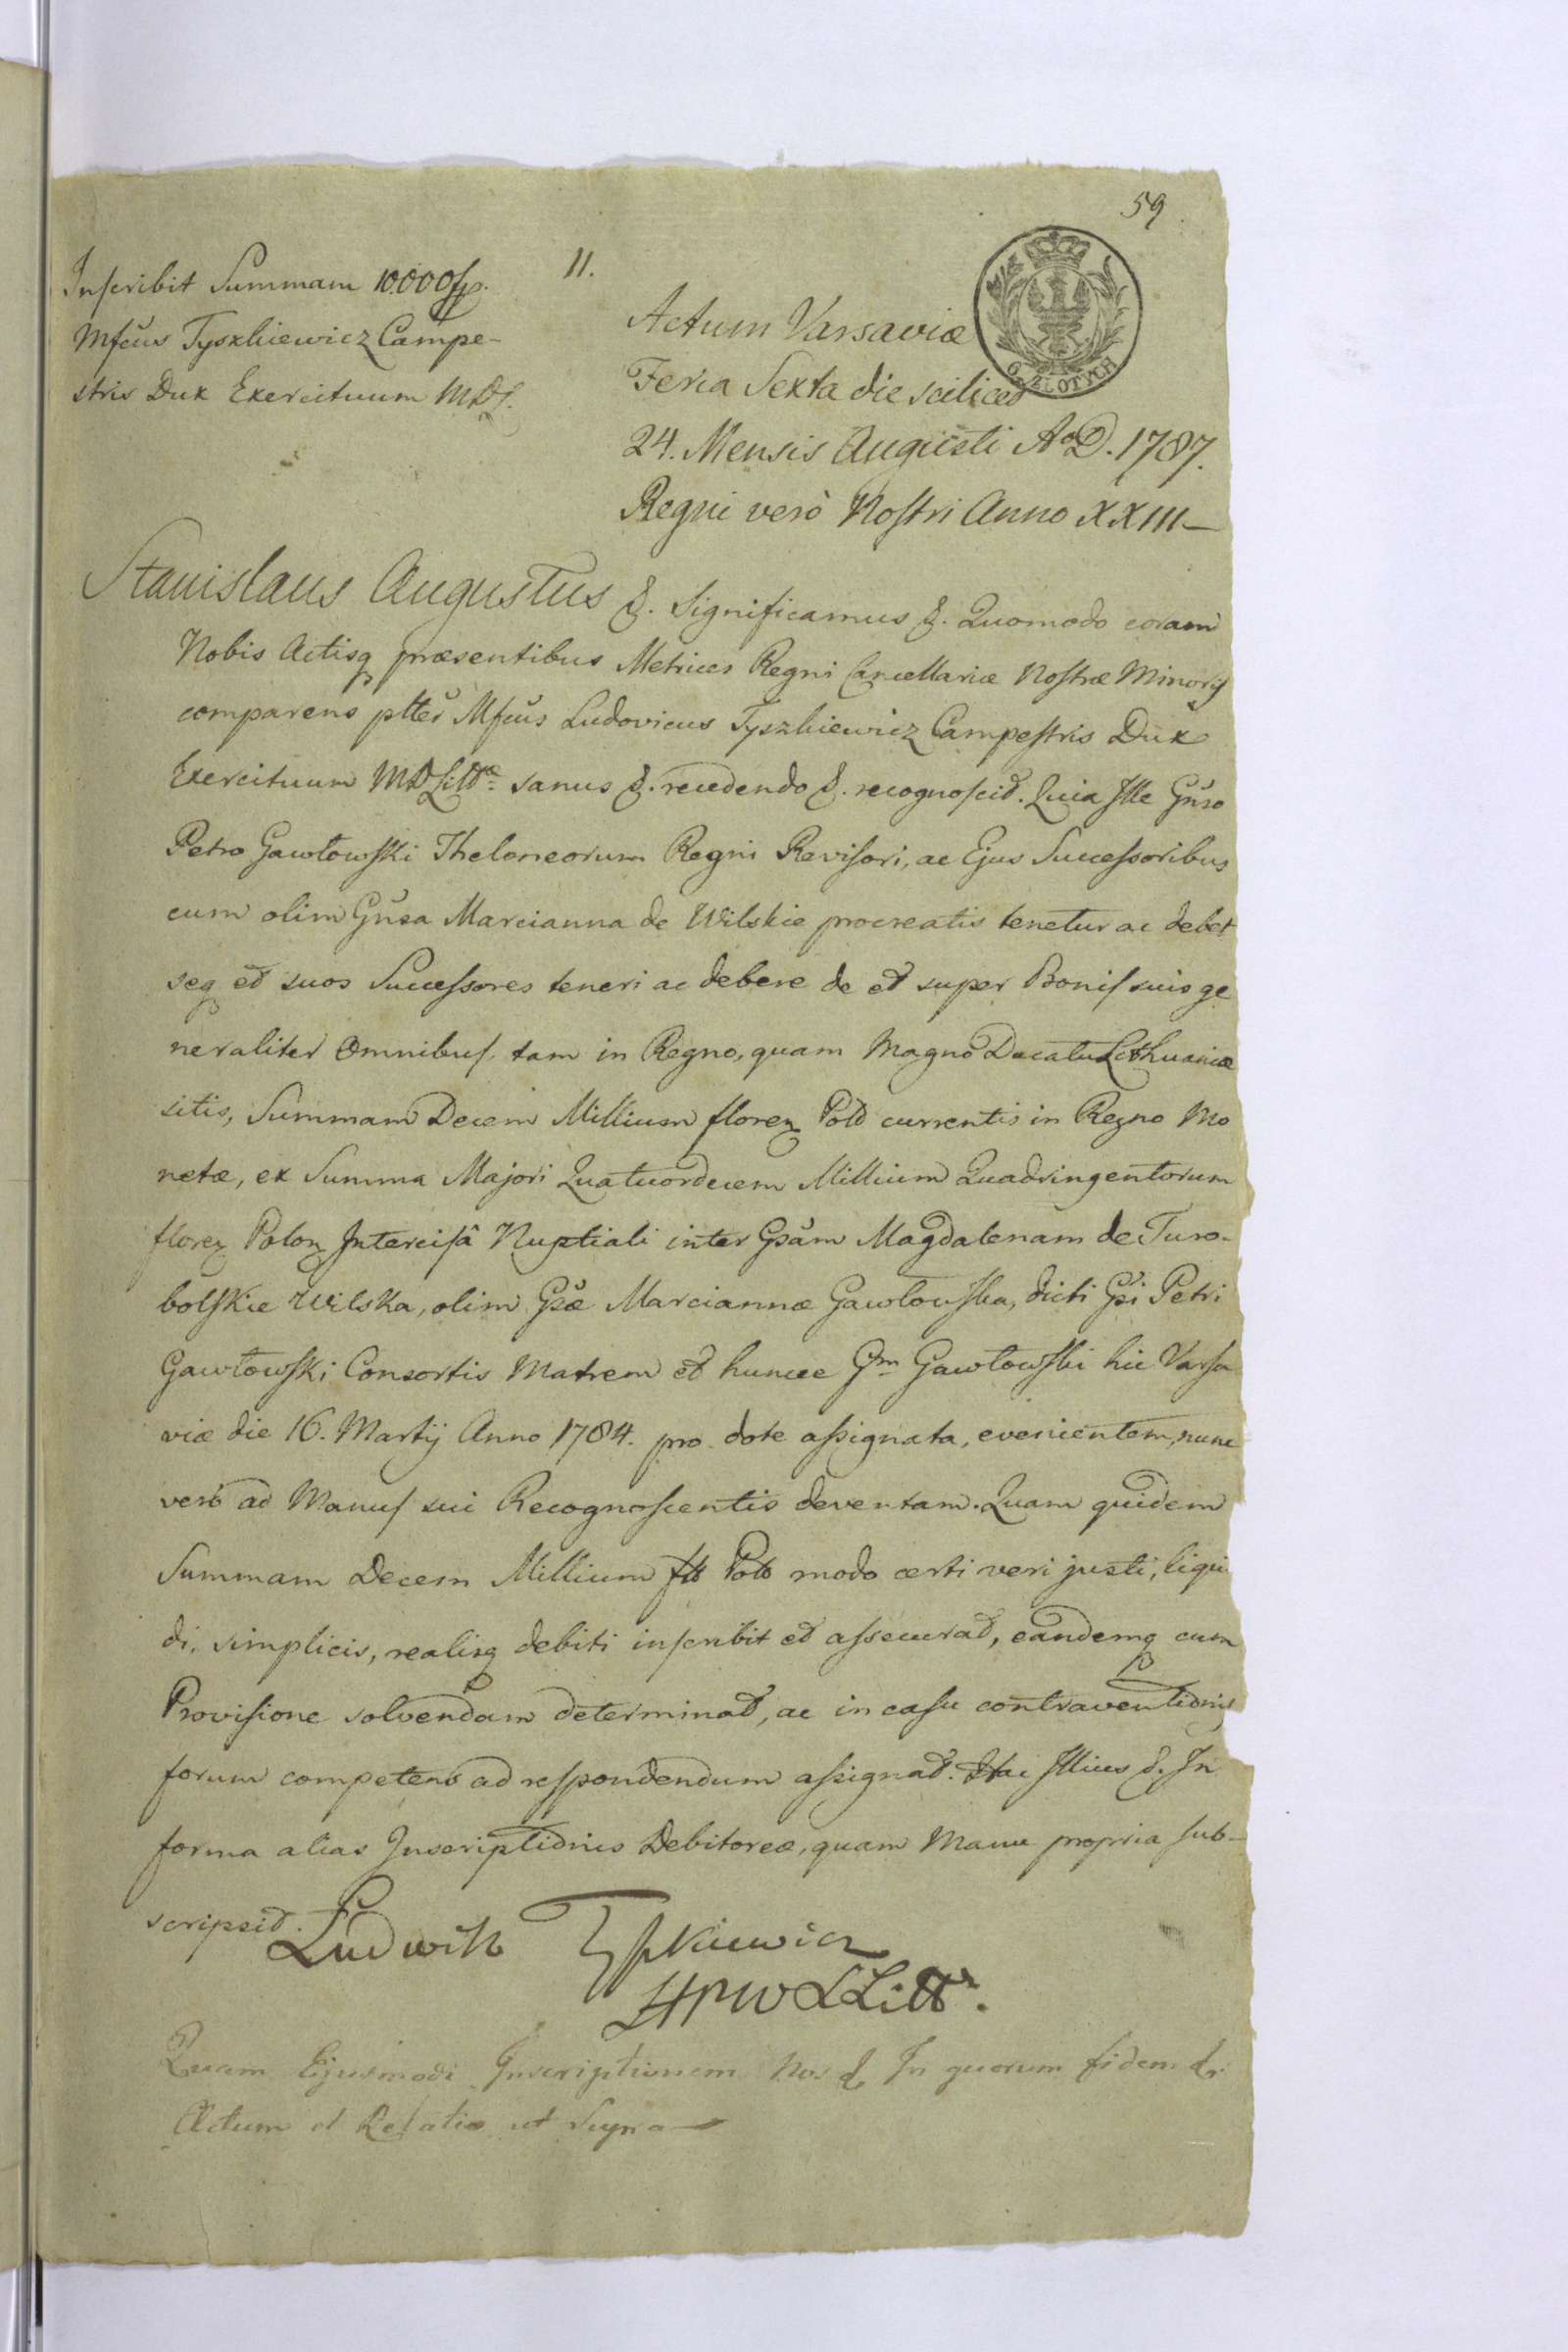 59
11.
Inscribit Summam 10.000 fp.
Mfcus Tyszkiewicz Campe-
stris Dux Exercituum MDL.
Actum Varsaviæ
6. ZŁOTYCH
Feria Sexta die scilicet
24. Mensis Augusti A.D. 1787.
Regni verò Nostri Anno XXIII
Stanislaus Augustus &. Significamus &. Quomodo coram
Nobis Actisq præsentibus Metrices Regni Cancellariæ Nostræ Minoris
comparens ptter Mfcus Ludovicus Tyszkiewicz Campestris Dux
Exercituum MDLitt. sanus &. recedendo &. recognoscit. Quia Ille Gnso
Petro Gawłowski Theloneorum Regni Revisori, ac Ejus Successoribus
cum olim Gnsa Marcianna de Wilskie procreatis tenetur ac debet
seq et suos Successores teneri ac debere de et super Bonis suis ge
neraliter omnibus, tam in Regno, quam Magno Ducatu Lithuaniæ
sitis, Summam Decem Millium floren Pold currentis in Regno Mo
netæ, ex Summa Majori Quatuordecem Millium Quadringentorum
floren Polon Intercisâ Nuptiali inter Gsam Magdalenam de Turo-
bolskie Wilska, olim Gsæ Marciannæ Gawłowska, dicti Gsi Petri
Gawłowski Consortis Matrem et huncce Gm Gawłowski hic Varsa
viæ die 16. Martij Anno 1784. pro dote assignata, evenientem, nunc
verò ad Manus sui Recognoscentis deventam. Quam quidem
Summam Decem Millium Pold modo certi veri justi, liqui
di, simplicis, realisq debiti inscribit et assecurat, eandemq cum
Provisione solvendam determinat, ac in casu contraventionis
forum competens ad respondendum assignat. Illius &. In
forma alias Inscriptionis Debitoreæ, quam Manu propria sub-
scripsit.
Ludwik Tyszkiewicz
HPWLLitt.
Quam Ejusmodi Inscriptionem Nos &. In quorum fidem &.
Actum et Relatio ut Supra